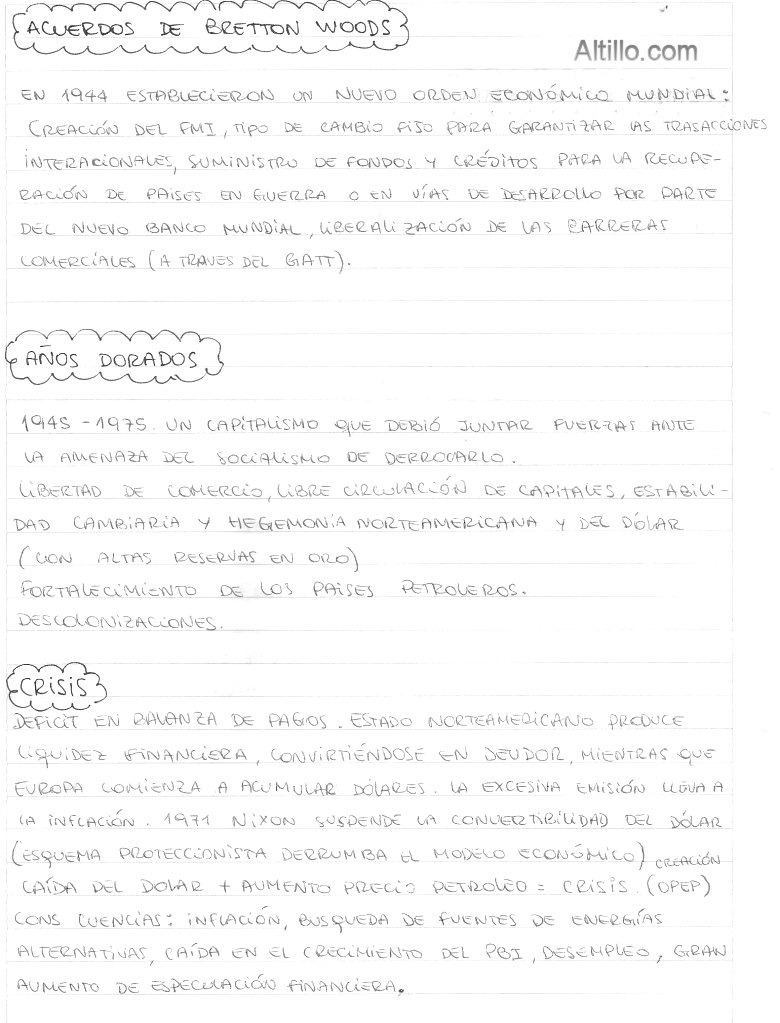 ACUERDOS DE BRETTON WOODS
Altillo.com
EN 1944 ESTABLECIERON UN NUEVO ORDEN ECONÓMICO MUNDIAL:
CREACIÓN DEL FMI, TIPO DE CAMBIO FIJO PARA GARANTIZAR LAS TRASACCIONES
INTERACIONALES, SUMINISTRO DE FONDOS Y CRÉDITOS PARA LA RECUPE-
RACIÓN DE PAISES EN GUERRA O EN VÍAS DE DESARROLLO POR PARTE
DEL NUEVO BANCO MUNDIAL, LIBERALIZACIÓN DE LAS BARRERAS
COMERCIALES (A TRAVES DEL GATT).
AÑOS DORADOS
1945 - 1975. UN CAPITALISMO QUE DEBIÓ JUNTAR FUERZAS ANTE
LA AMENAZA DEL SOCIALISMO DE DERROCARLO.
LIBERTAD DE COMERCIO, LIBRE CIRCULACIÓN DE CAPITALES, ESTABILI-
DAD CAMBIARIA Y HEGEMONÍA NORTEAMERICANA Y DEL DÓLAR
(CON ALTAS RESERVAS EN ORO)
FORTALECIMIENTO DE LOS PAISES PETROLEROS.
DESCOLONIZACIONES.
CRISIS
DEFICIT EN BALANZA DE PAGOS. ESTADO NORTEAMERICANO PRODUCE
LIQUIDEZ FINANCIERA, CONVIRTIÉNDOSE EN DEUDOR, MIENTRAS QUE
EUROPA COMIENZA A ACUMULAR DÓLARES. LA EXCESIVA EMISIÓN LLEVA A
LA INFLACIÓN. 1971 NIXON SUSPENDE LA CONVERTIBILIDAD DEL DÓLAR
(ESQUEMA PROTECCIONISTA DERRUMBA EL MODELO ECONÓMICO) CREACIÓN
CAÍDA DEL DOLAR + AUMENTO PRECIO PETROLEO = CRISIS. (OPEP)
CONS CUENCIAS: INFLACIÓN, BUSQUEDA DE FUENTES DE ENERGÍAS
ALTERNATIVAS, CAÍDA EN EL CRECIMIENTO DEL PBI, DESEMPLEO, GRAN
AUMENTO DE ESPECULACIÓN FINANCIERA.